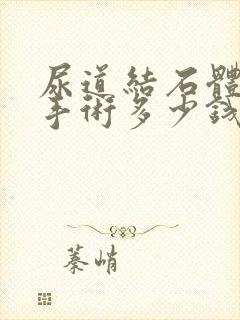 尿道結石體
手術多少錢
蓁峭